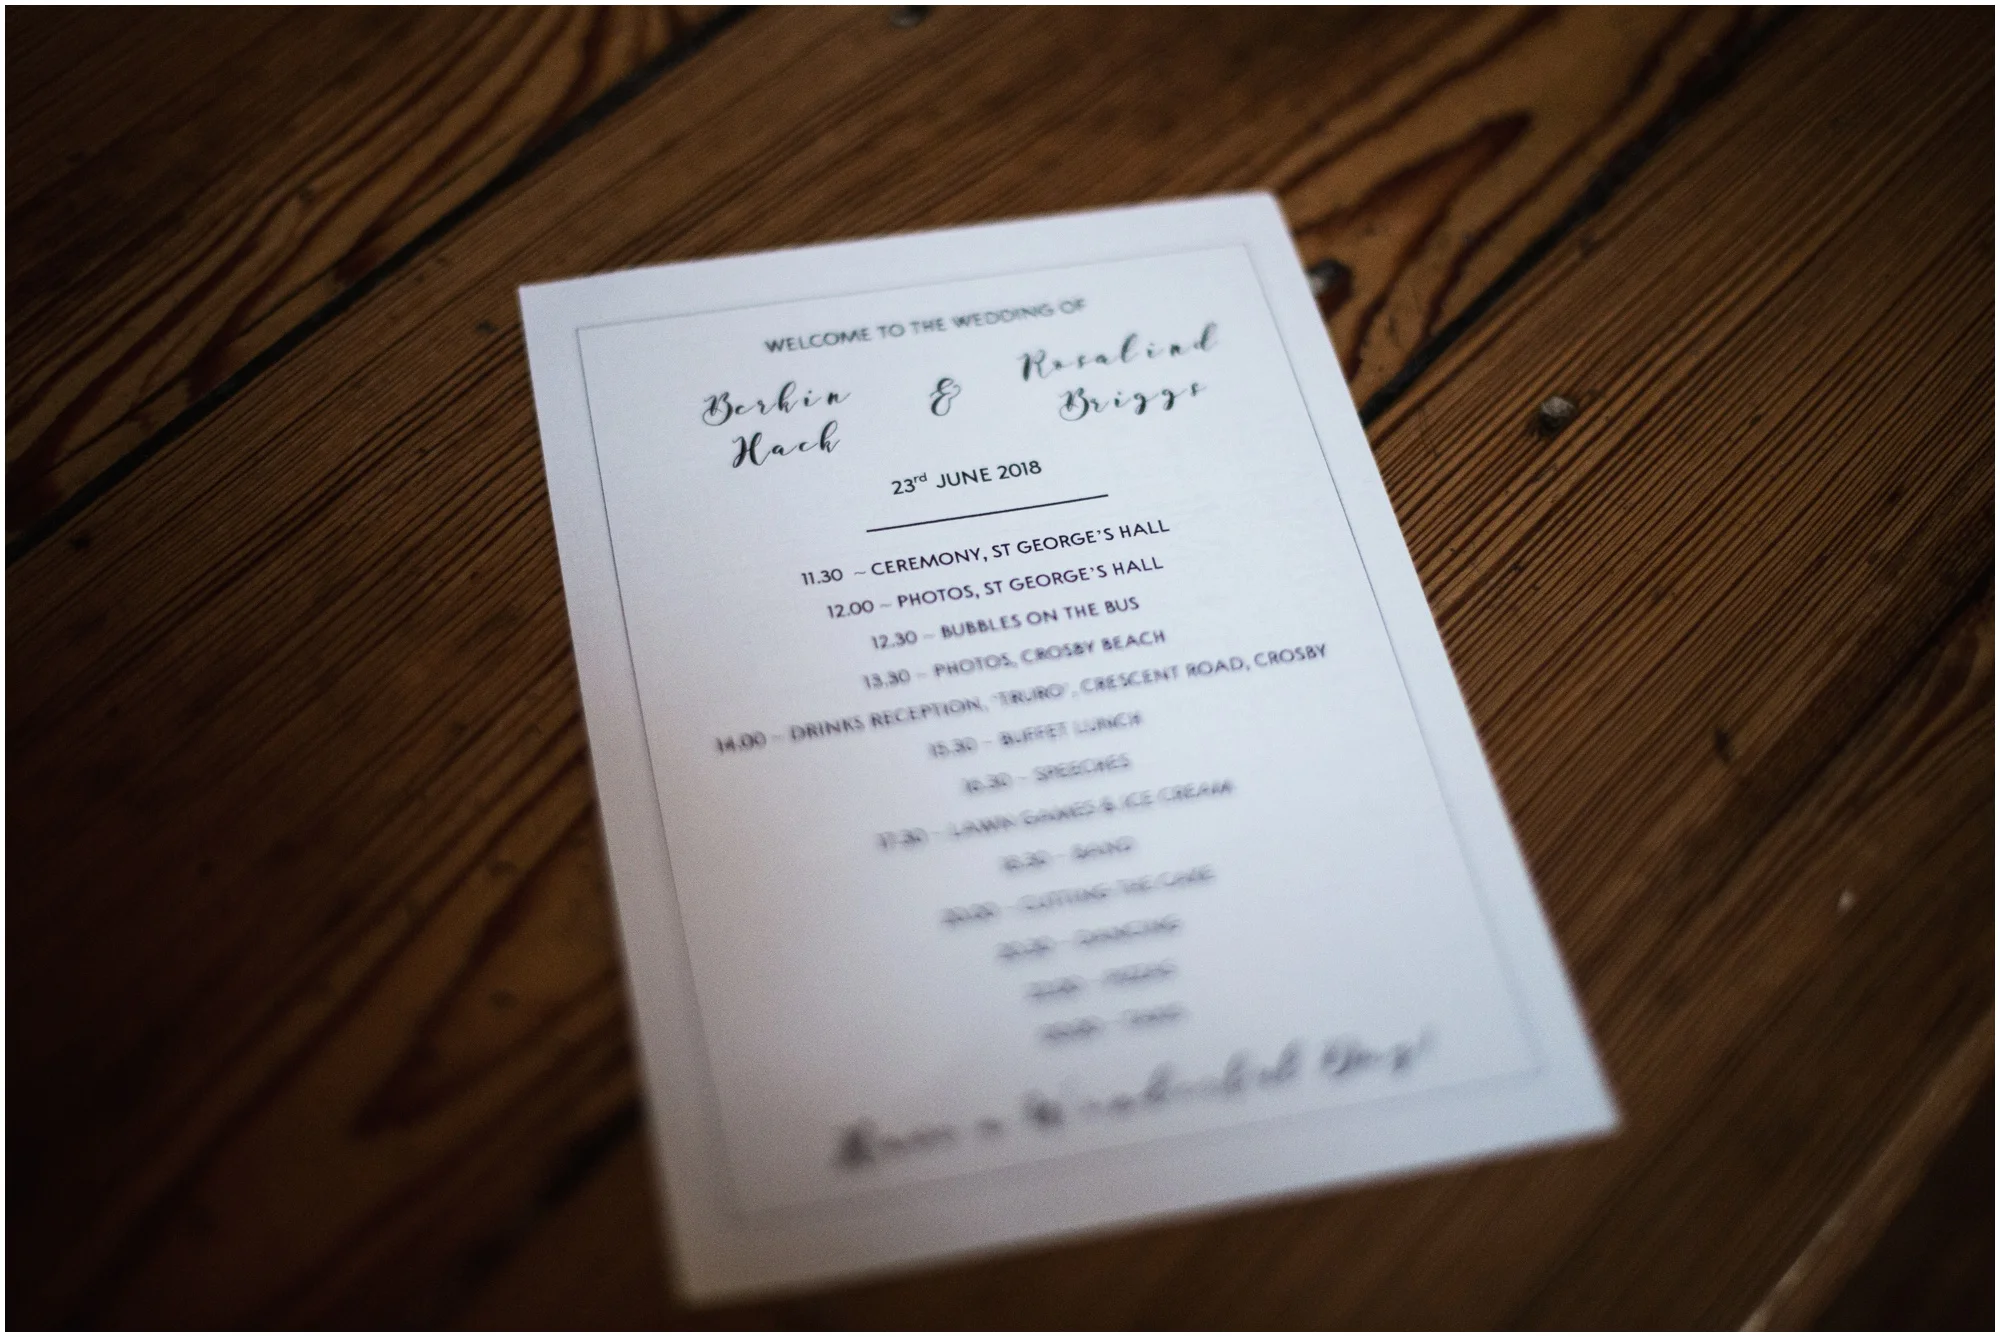 WELCOME TO THE WEDDING OF
Berkin & Rosalind
Hack Briggs
23rd JUNE 2018
11.30 ~ CEREMONY, ST GEORGE'S HALL
12.00 ~ PHOTOS, ST GEORGE'S HALL
12.30 ~ BUBBLES ON THE BUS
13.30 ~ PHOTOS, CROSBY BEACH
14.00 ~ DRINKS RECEPTION, 'TRURO', CRESCENT ROAD, CROSBY
15.30 ~ BUFFET LUNCH
16.30 ~ SPEECHES
17.30 ~ LAWN GAMES & ICE CREAM
BAND
CUTTING THE CAKE
DANCING